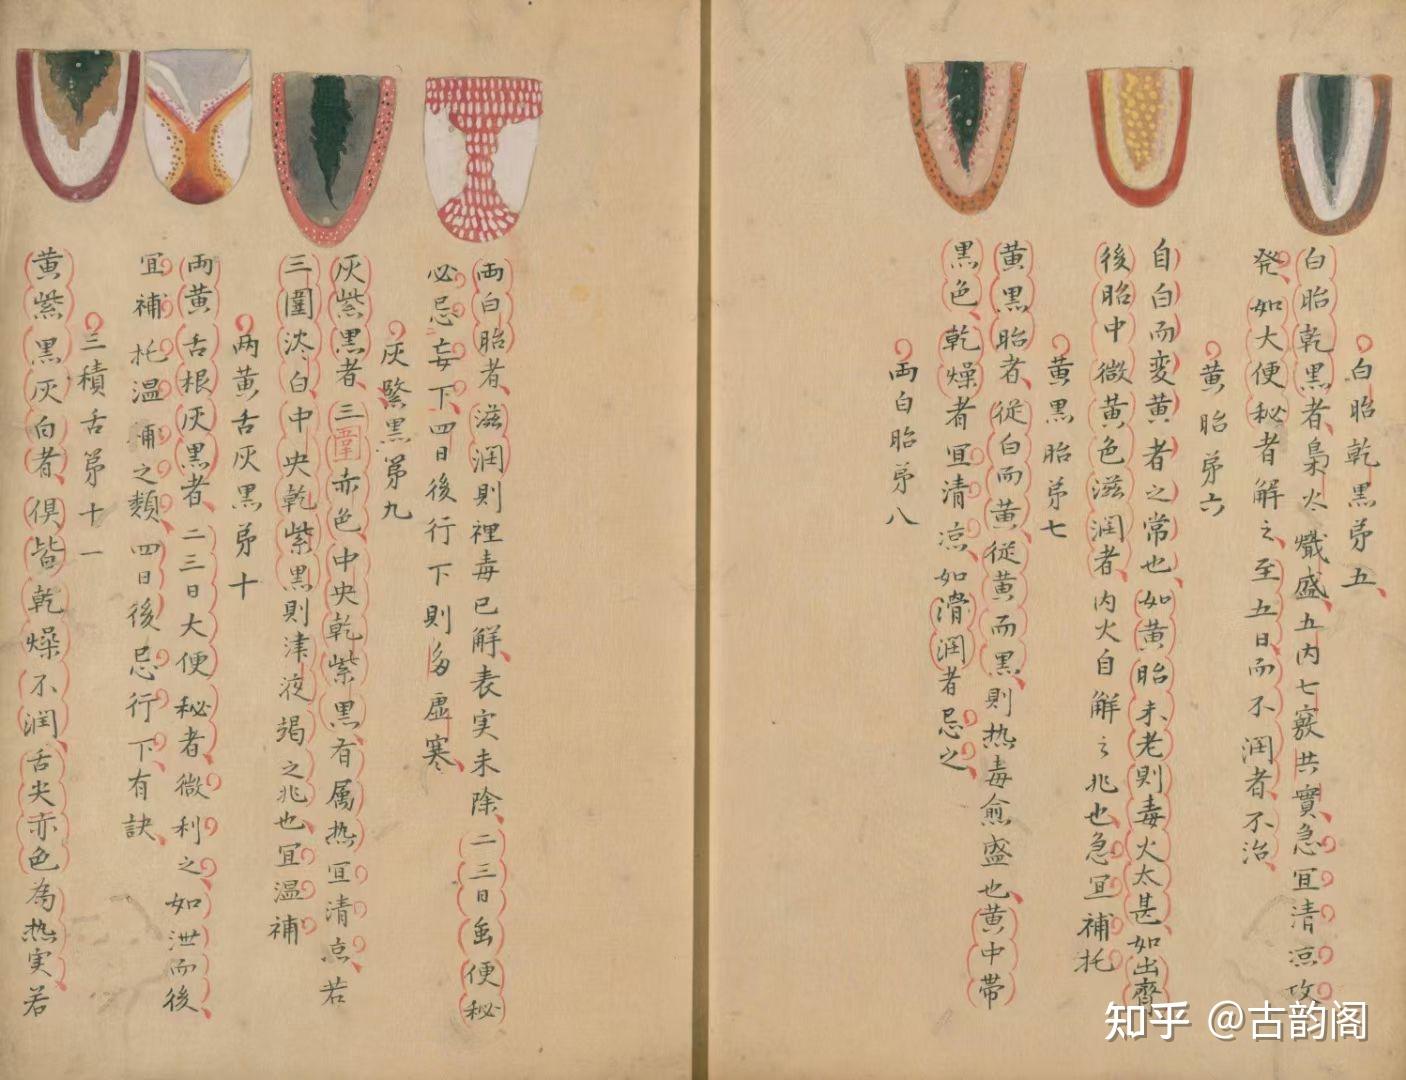 白胎乾黒弟五
白胎乾黒者梟火熾盛五内七竅共實急宜清凉攻
発如大便秘者解之至五日而不潤者不治
黄胎弟六
自白而変黄者之常也如黄胎未老則毒火太甚如出齊
後胎中微黄色滋潤者内火自解之兆也急宜補托
黄黒胎弟七
黄黒胎者従白而黄従黄而黒則热毒愈盛也黄中帯
黒色乾燥者宜清凉如滑潤者忌之
両白胎弟八
両白胎者滋潤則裡毒已解表実未除二三日虽便秘
必忌妄下四日後行下則多虚寒
灰紫黒弟九
灰紫黒者三圍赤色中央乾紫黒者属热宜清凉若
三圍淡白中央乾紫黒則津液竭之兆也宜温補
両黄舌灰黒弟十
両黄舌根灰黒者二三日大便秘者微利之如泄而後
宜補托温補之類四日後忌行下有訣
三積舌弟十一
黄紫黒灰白者俱皆乾燥不潤舌尖赤色為热実若
知乎 @古韵阁